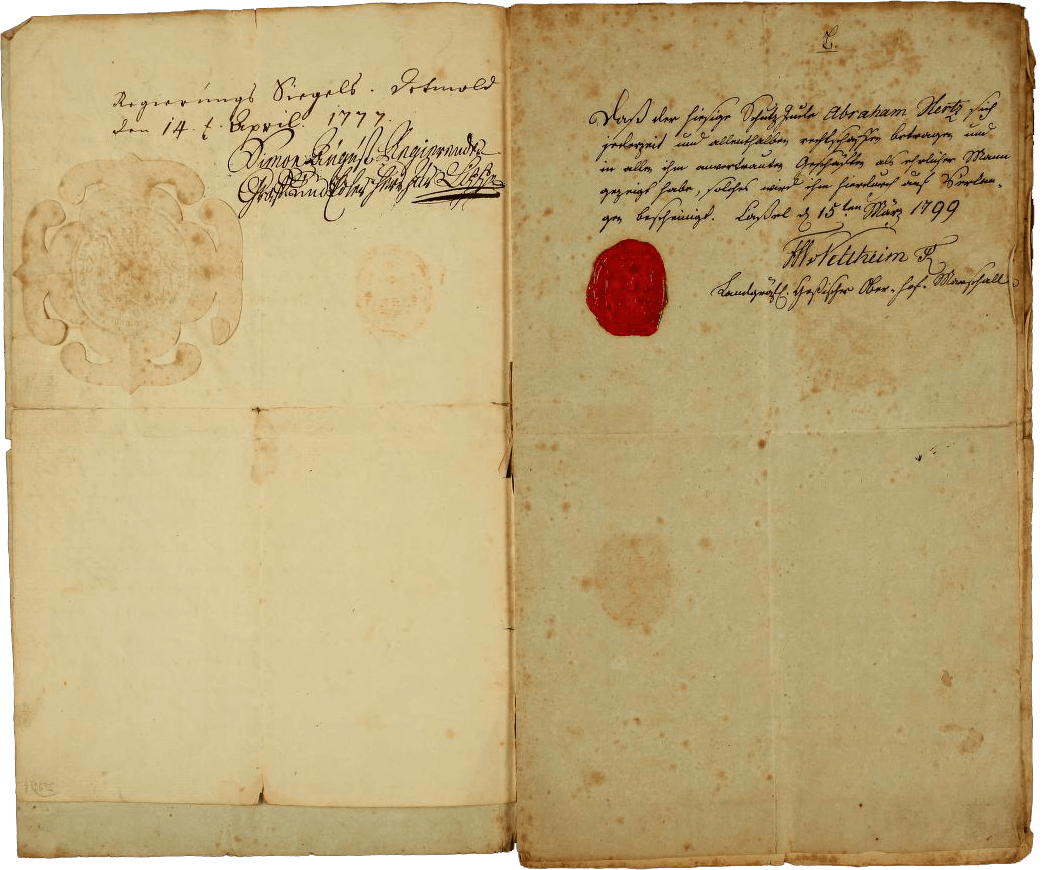 Regierungs Siegels. Detmold
den 14. t. April. 1777.
Simon August Regierender
Graf und Edler Herr zur Lippe
L.
Daß der hiesige Schutz Jude Abraham Hertz sich
jederzeit und allenthalben rechtschaffen betragen und
in allen ihm anvertrauten Geschäften als ehrlicher Mann
gezeigt habe, solches wird ihm hierdurch auf Verlan-
gen bescheinigt. Cassel d 15ten März 1799
Veltheim
Landgräfl. Heßischer Ober-Hof-Marschall